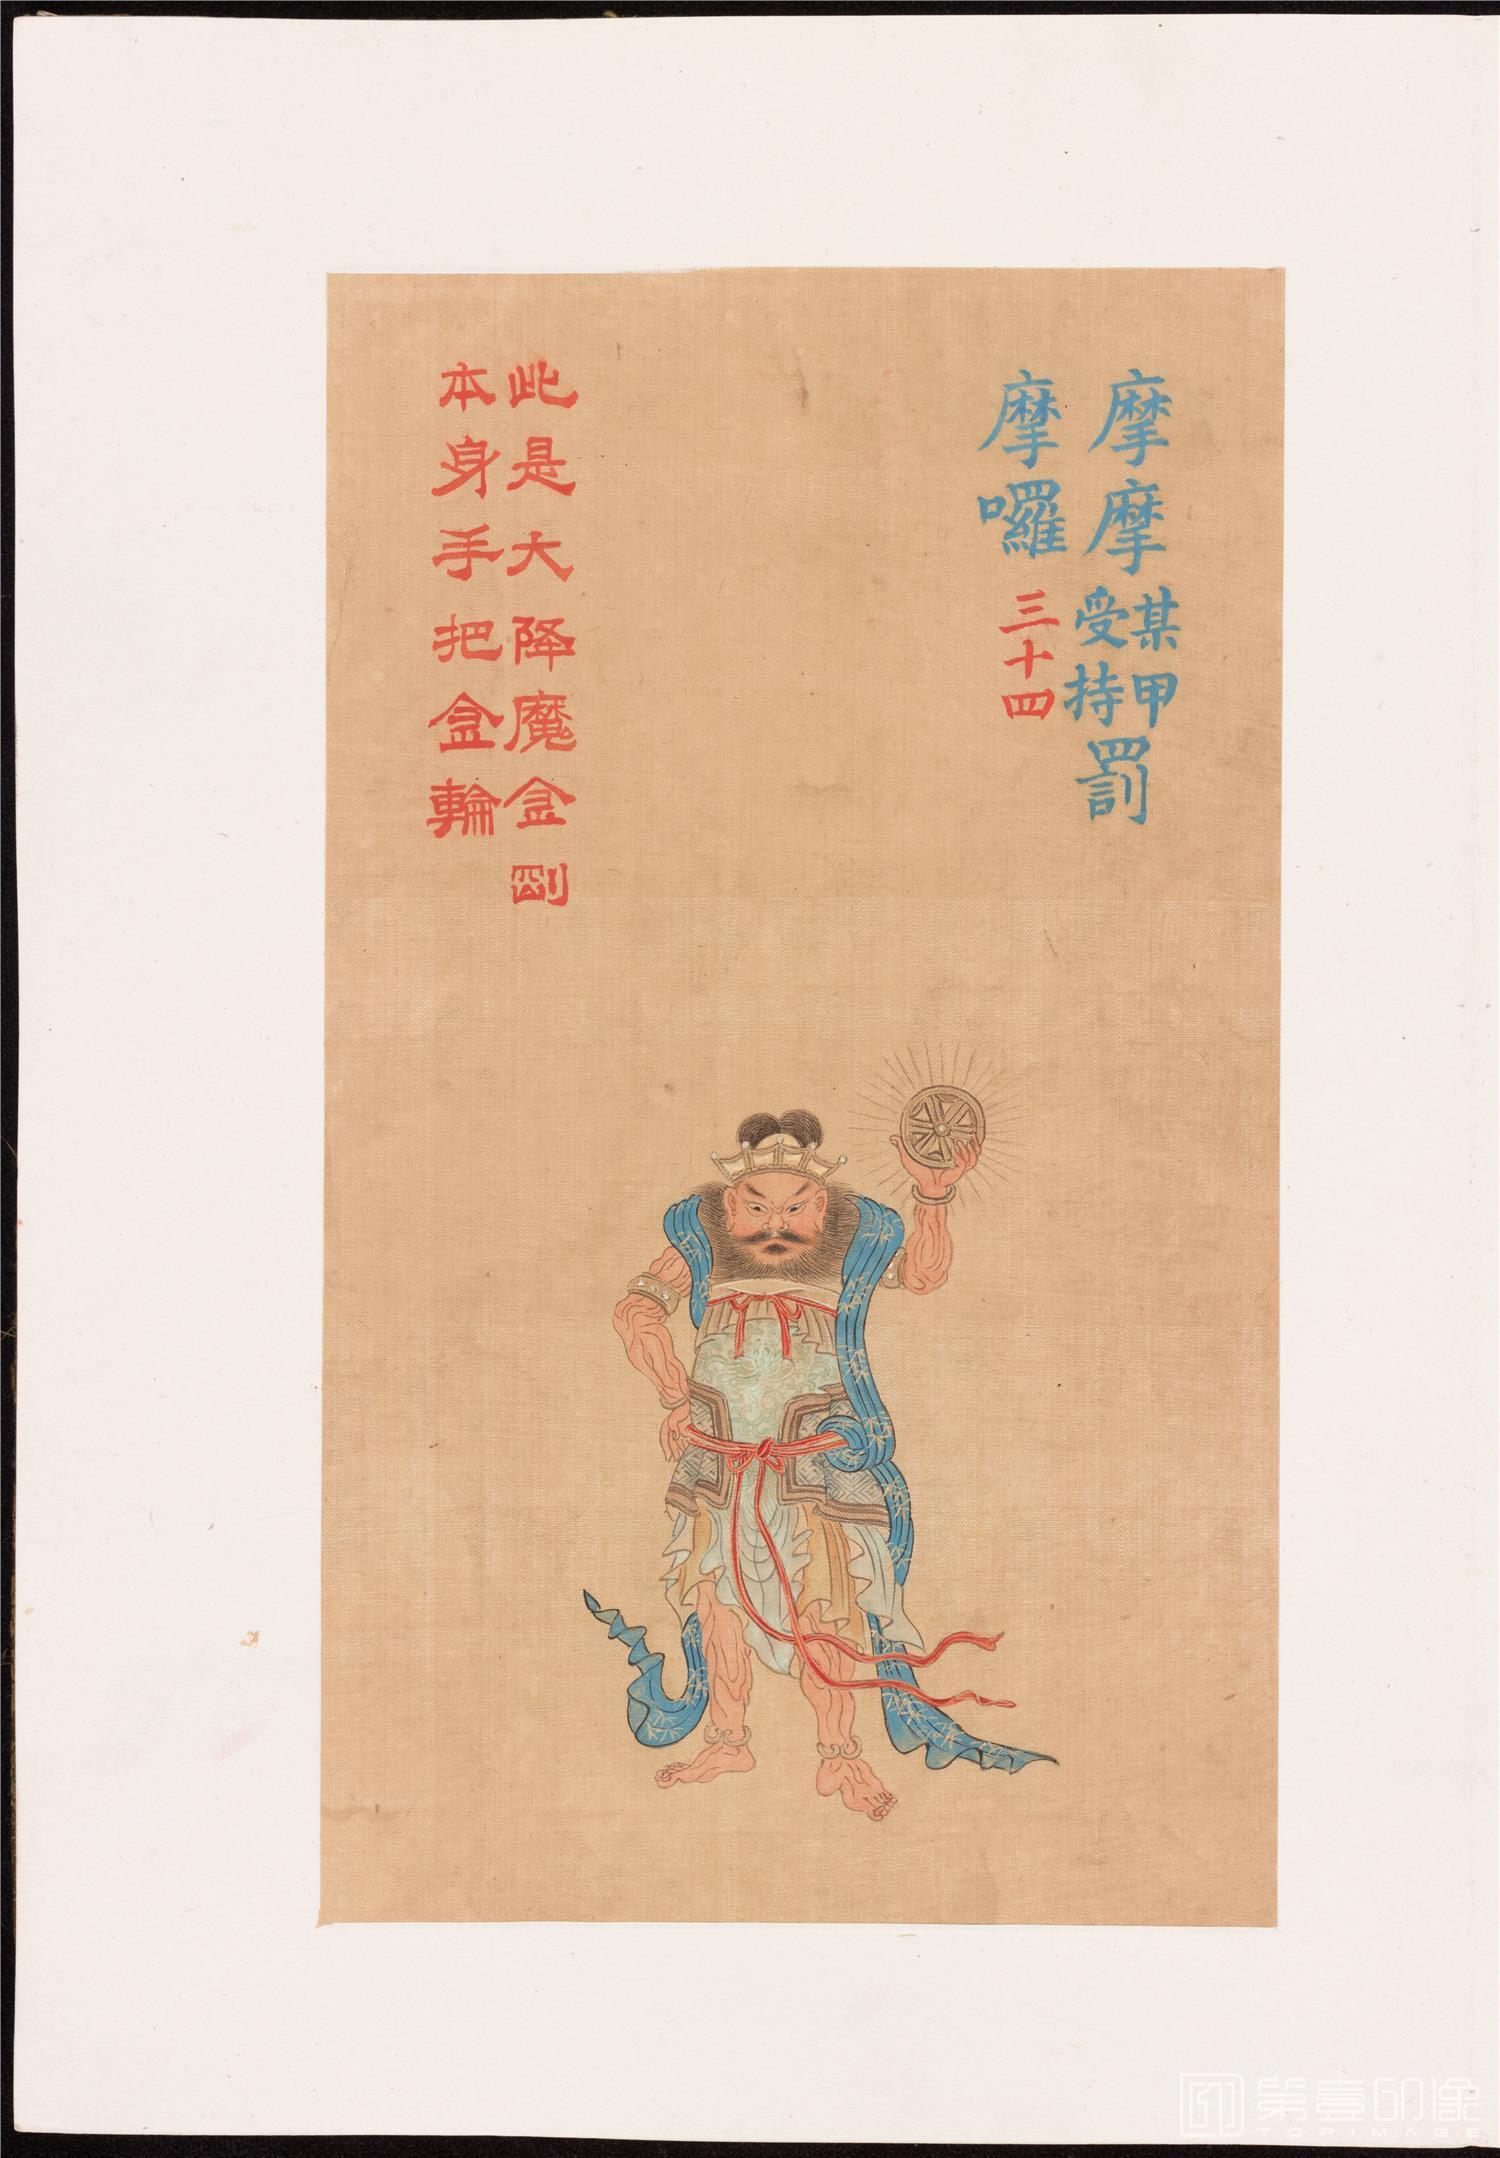 摩摩某甲受持罰
摩囉三十四
此是大降魔金剛
本身手把金輪
第壹印像
TOPIMAGE